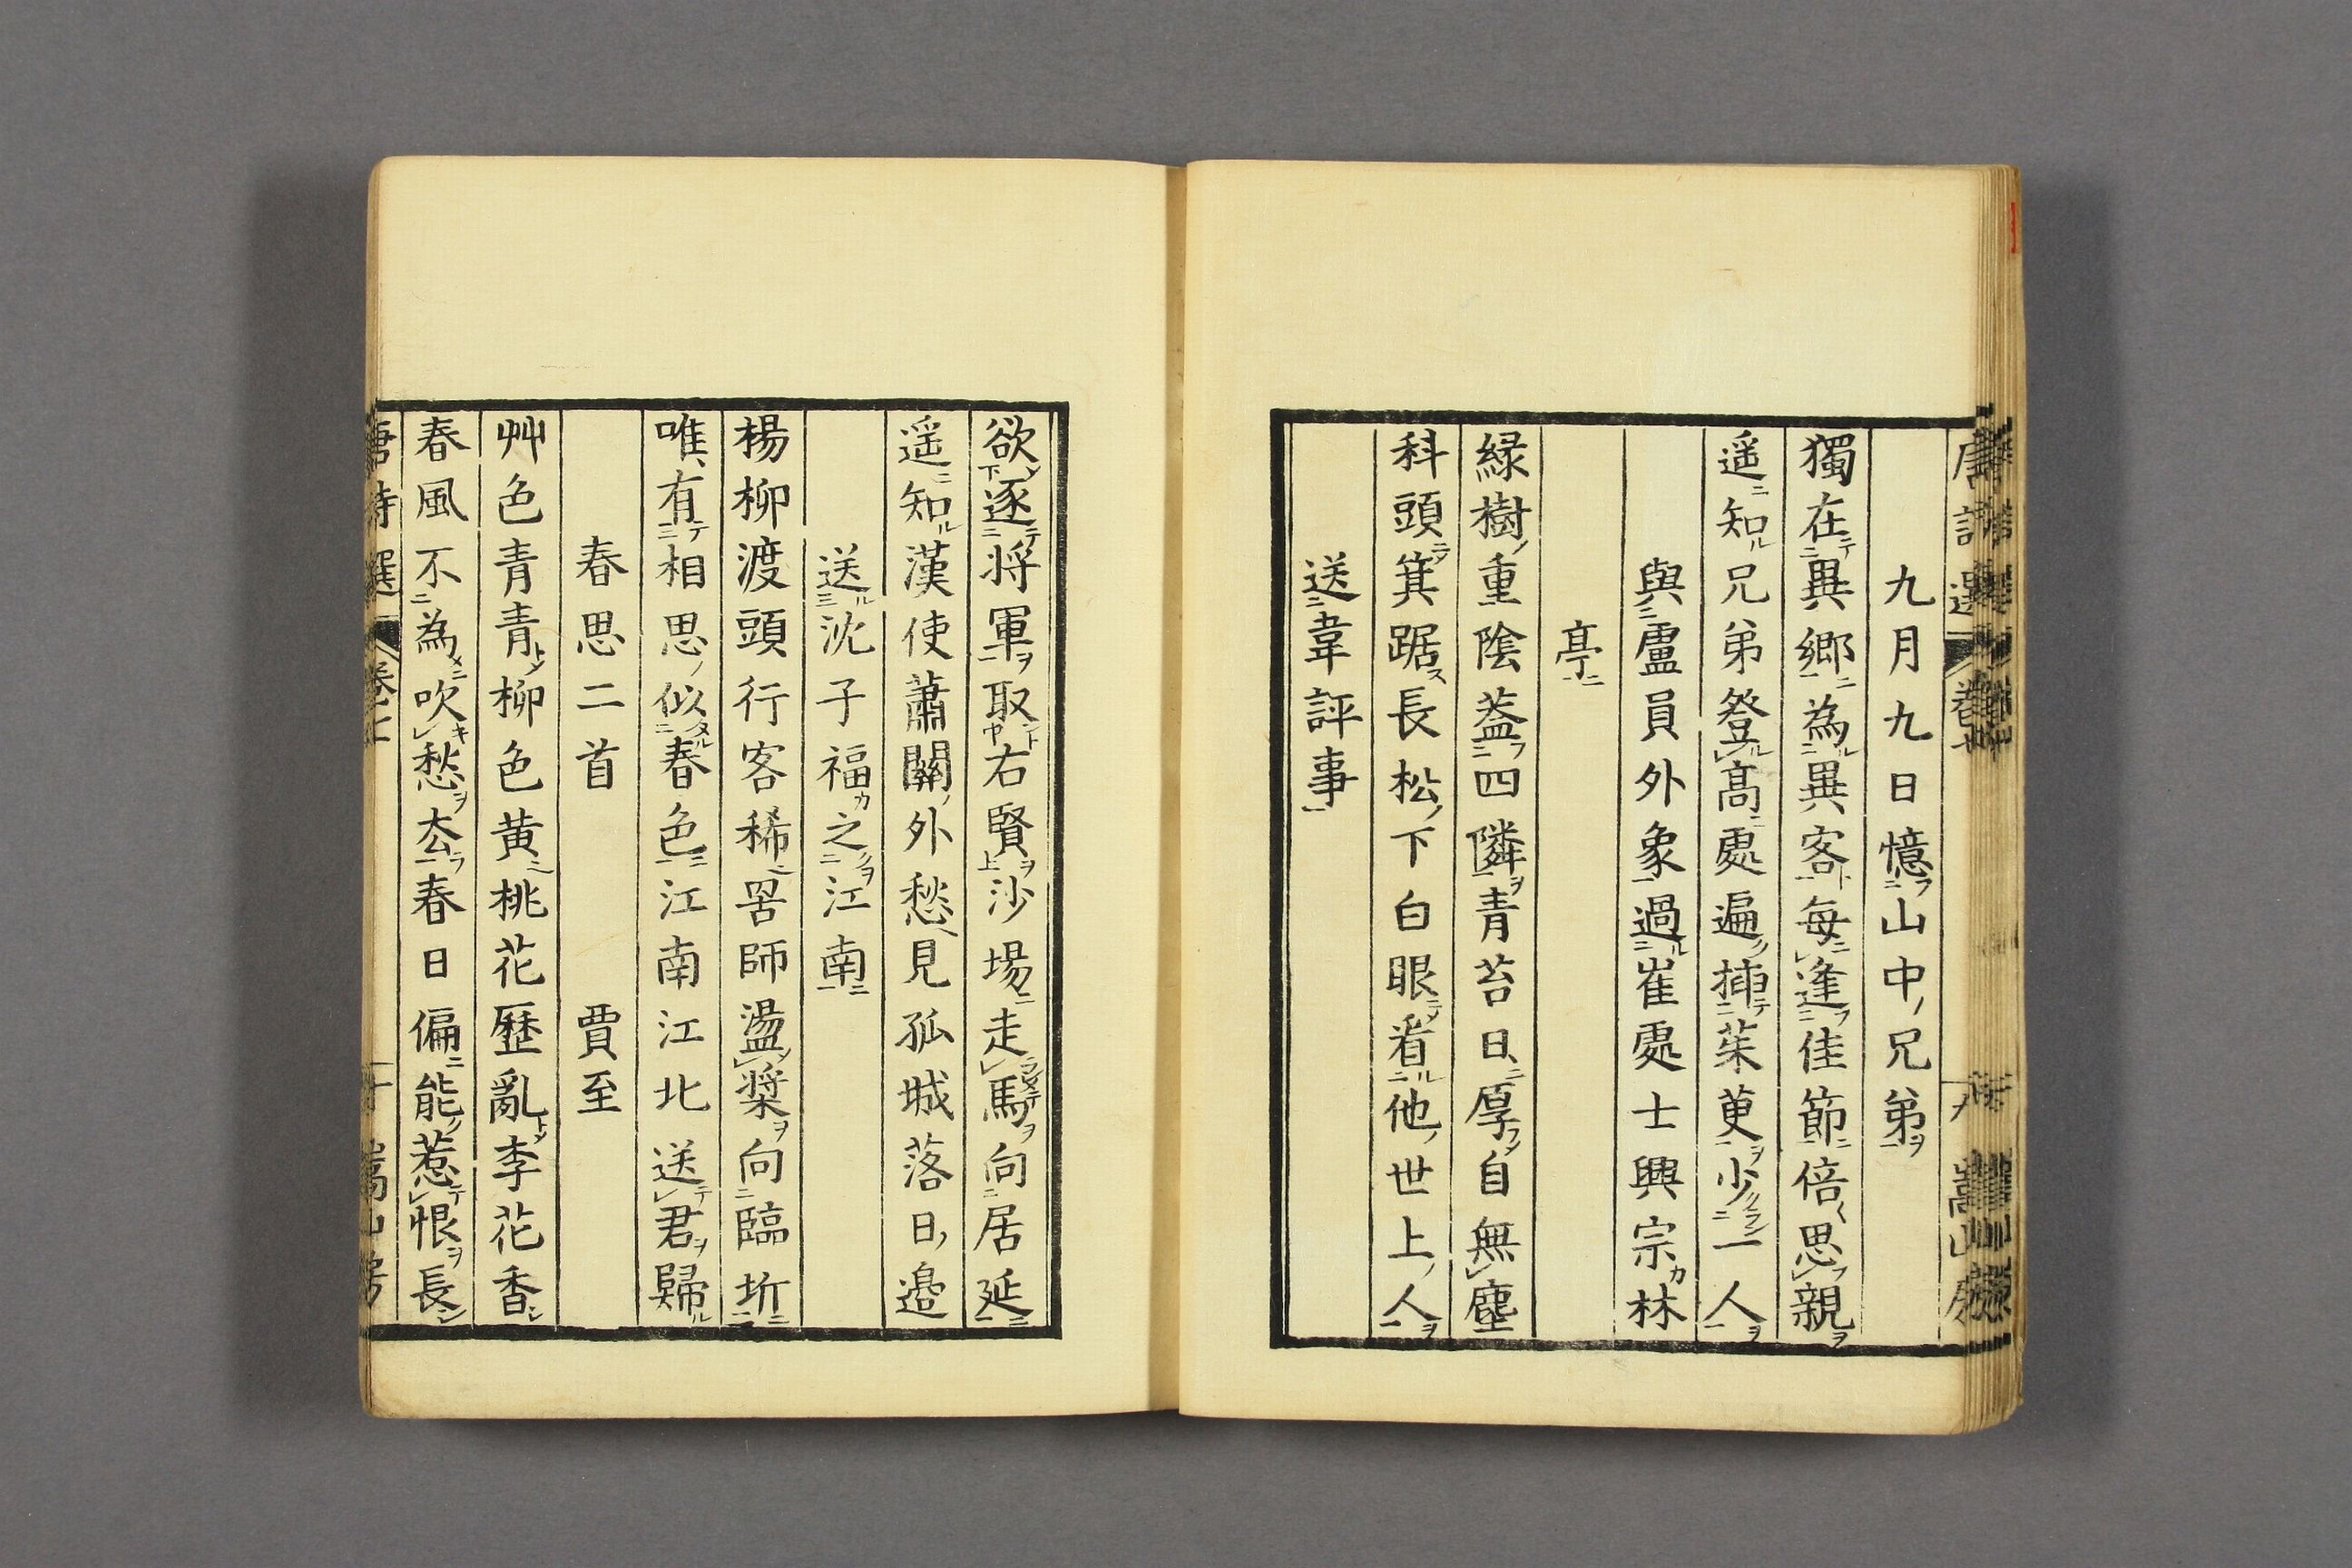 唐詩選 卷七 嵩山房
九月九日憶山中兄弟
獨在異鄉為異客每逢佳節倍思親
遥知兄弟登髙處遍揷茱萸少一人
與盧員外象過崔處士興宗林
亭
緑樹重陰葢四隣青苔日厚自無塵
科頭箕踞長松下白眼看他世上人
送韋評事
欲逐将軍取右賢沙場走馬向居延
遥知漢使蕭關外愁見孤城落日邉
送沈子福之江南
楊柳渡頭行客稀罟師盪槳向臨圻
唯有相思似春色江南江北送君歸
春思二首 賈至
艸色青青柳色黄桃花歷亂李花香
春風不為吹愁厺春日偏能惹恨長
唐詩選 卷七 十 嵩山房